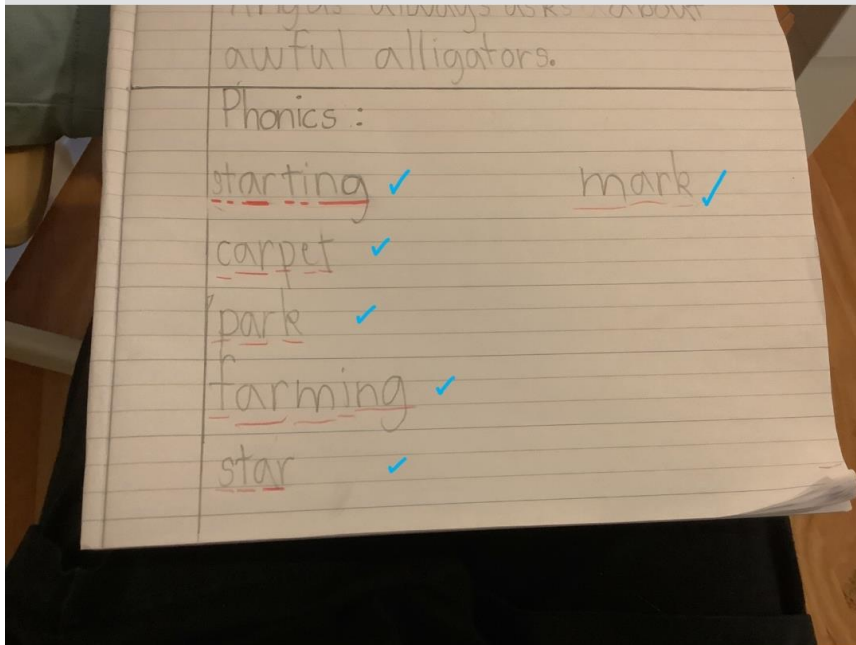 always asks about
awful alligators.
Phonics :
starting mark
carpet
park
farming
star